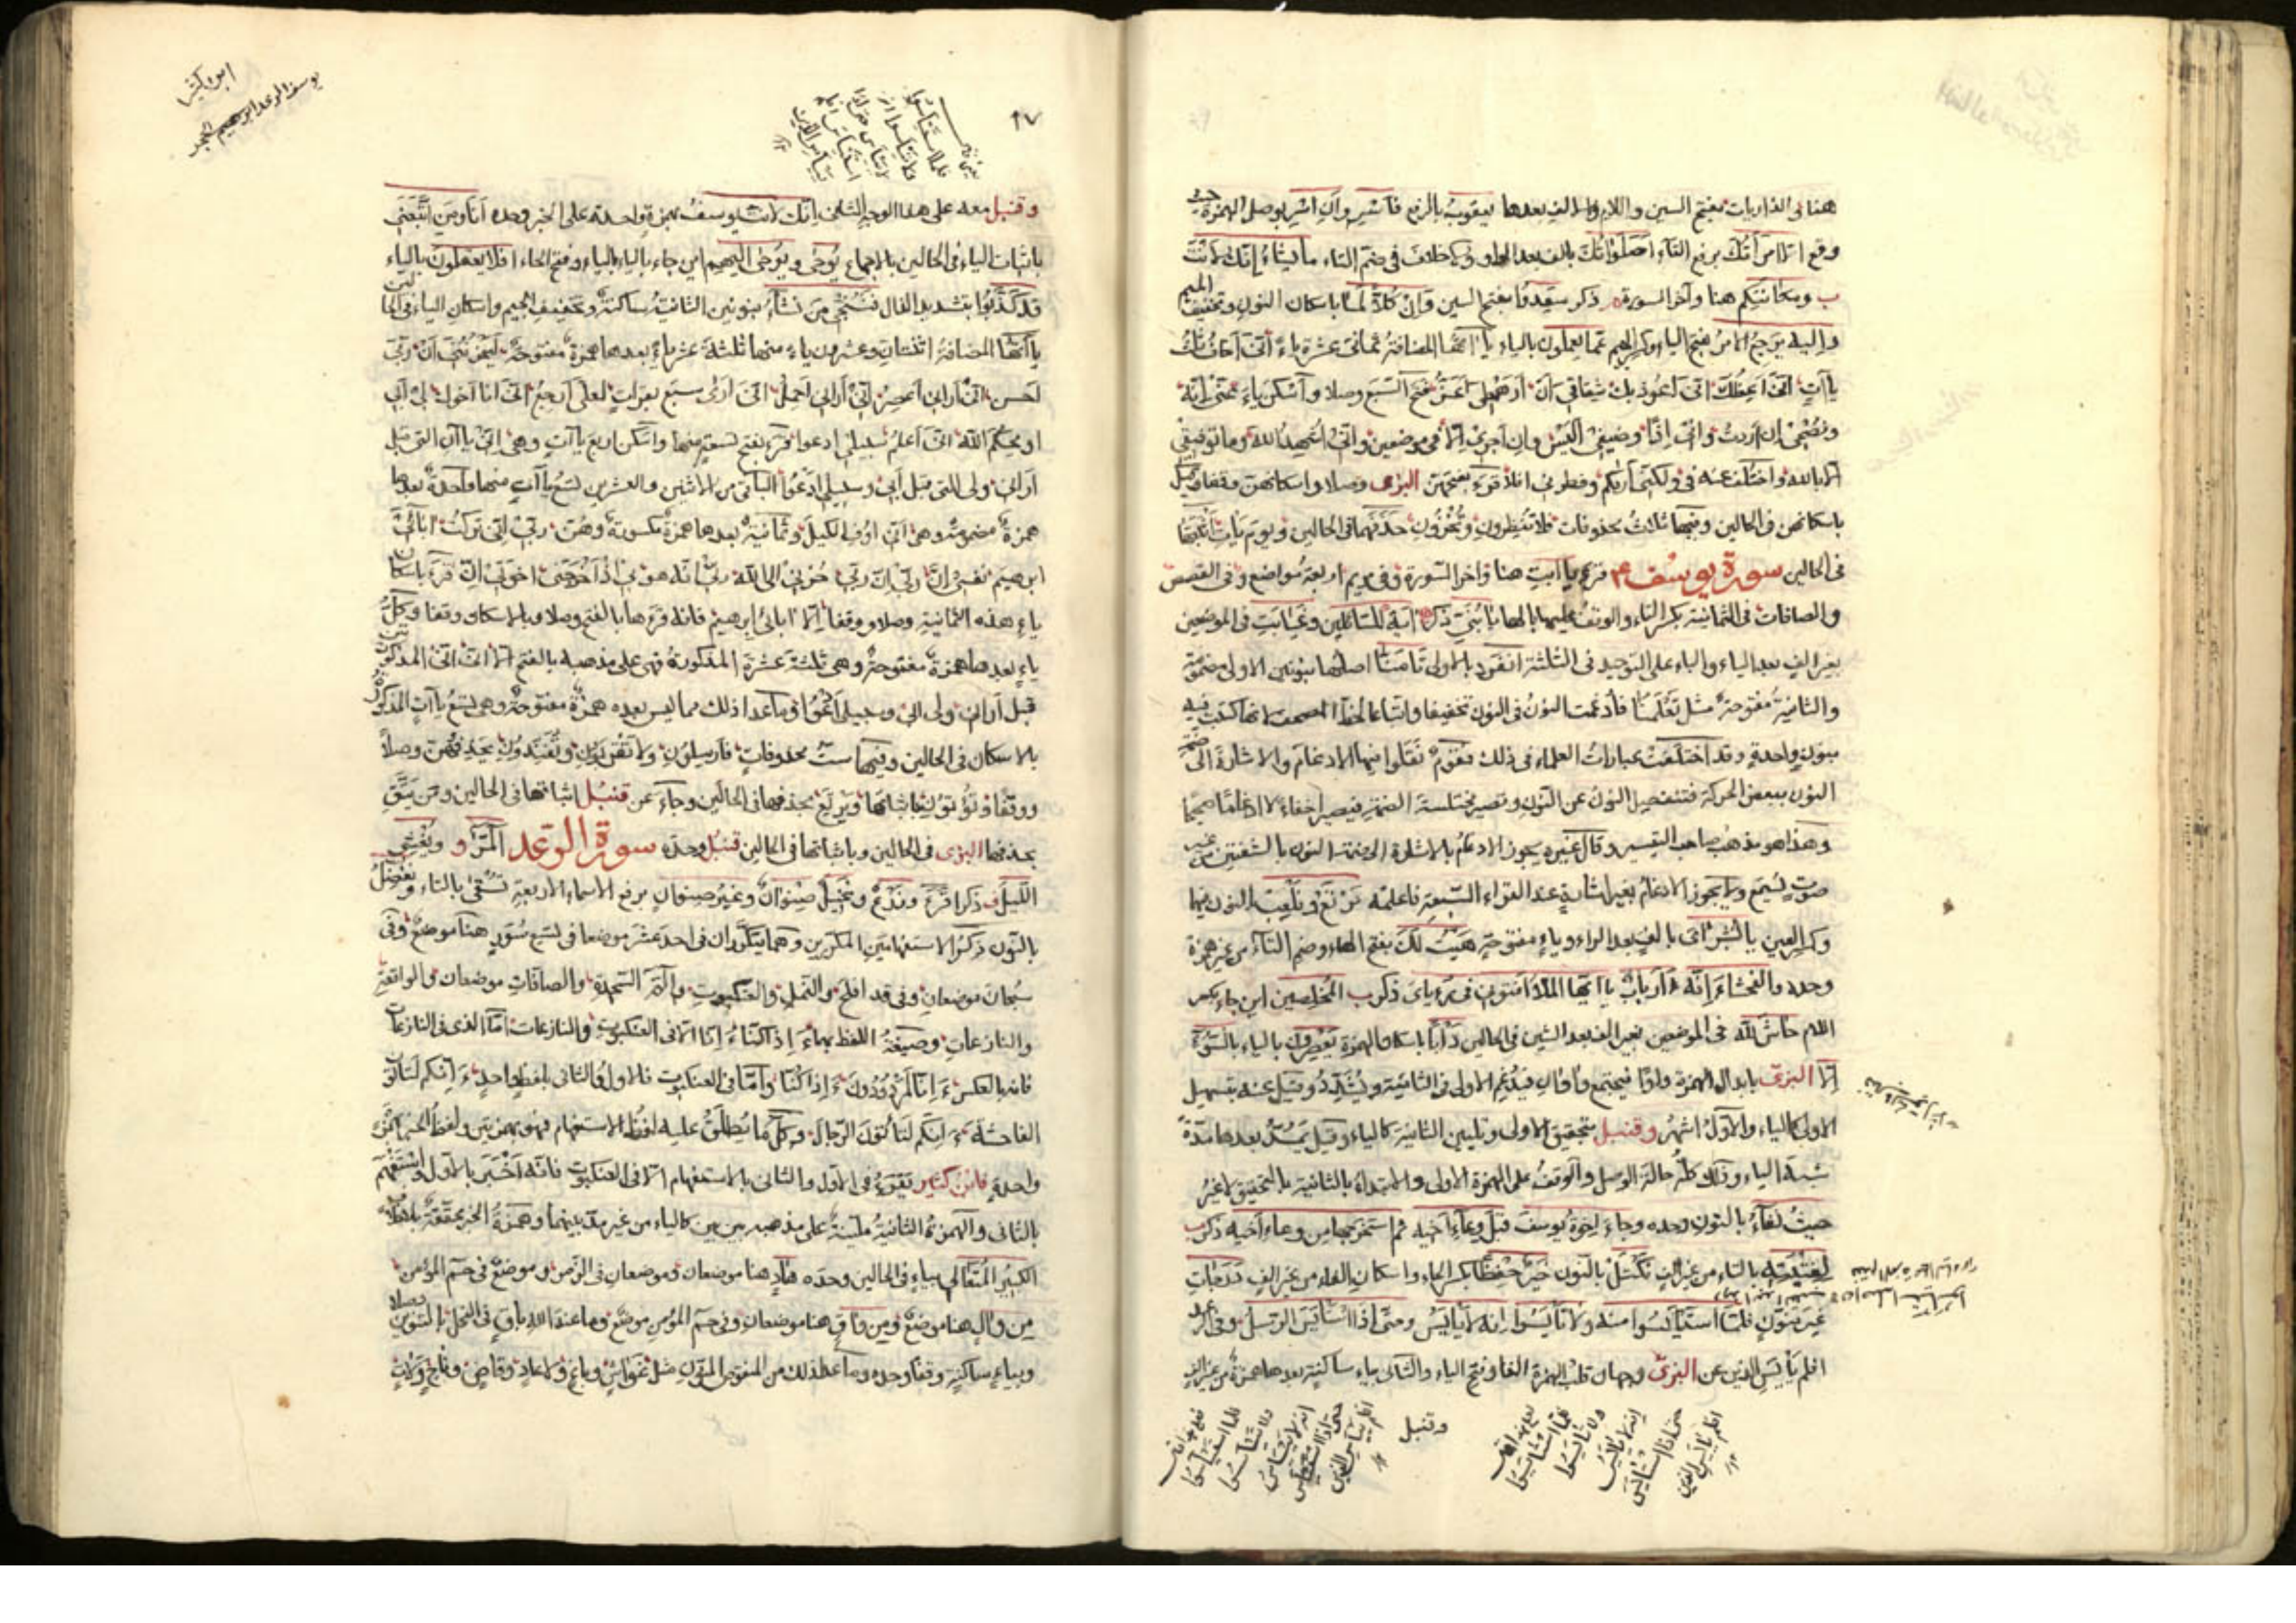 هنا فى الذاريات بفتح السين واللام والف بعدها يعقوب بالرفع فاسر وان اسر بوصل الهمزة حيث
وقع الا امرأتك برفع التاء اصلواتك بالف بعد الواو ولا خلاف فى ضم التاء ما يشاء انك لانت
ب ومكانتكم هنا وآخر السورة ذكر سعدوا بفتح السين وان كلا لما باسكان النون وتخفيف الميم
واليه يرجع الامر بفتح الياء وكسر الجيم عما يعملون بالياء ياآتها المضافة ثمانى عشرة ياء انى اخاف ثلث
ياآت انى اعظك انى اعوذ بك شقاقى ان ارهطى اعز فتح السبع وصلا واسكن ياء عنى انه
ونصحى ان اردت وانى اذا وضيفى اليس وان اجرى الا فى موضعين وانى اشهد الله وما توفيقى
الا بالله واختلف عنه فى ولكنى اريكم وفطرنى افلا قرء بفتحهن البزى وصلا واسكانهن وقفا وقنبل
باسكانهن فى الحالين وفيها ثلث محذوفات فلا تنظرون وتخزون حذفهما فى الحالين ويوم يأت اثبتها
فى الحالين سورة يوسف قرء يا ابت هنا وآخر السورة وفى مريم اربعة مواضع وفى القصص
والصافات فى الثمانية بكسر التاء والوقف عليها بالهاء يا بنى ذكر آية للسائلين وغيابت فى الموضعين
بغير الف بعد الياء والباء على التوحيد فى الثلثة انفرد بالاولى تأمنا اصلها بنونين الاولى مضمومة
والثانية مفتوحة مثل تعلمنا فادغمت النون فى النون تخفيفا واتباعا لخط المصحف لانها كتبت فيه
بنون واحدة وقد اختلفت عبارات العلماء فى ذلك فقوم نقلوا فيها الادغام والاشارة الى ضمة
النون ببعض الحركة فتنفصل النون عن النون وتصير مختلسة الضمة فيصير اخفاء لا ادغاما صحيحا
وهذا هو مذهب صاحب التيسير وقال غيره يجوز الادغام بالاشارة الى ضمة النون بالشفتين من غير
صوت يسمع ولا يجوز الادغام بغير اشارة عند القراء السبعة فاعلمه نرتع ونلعب بالنون فيهما
وكسر العين يا بشراى بالف بعد الراء وياء مفتوحة هيت لك بفتح الهاء وضم التاء من غير همزة
وحده والفحشاء انه ءارباب يا ايها الملأ افتونى فى رءياى ذكر ب المخلصين اين جاء بكسر
اللام حاش لله فى الموضعين بغير الف بعد الشين فى الحالين دأبا باسكان الهمزة يعصرون بالياء بالسوء
الا البزى بابدال الهمزة واوا فيجتمع واوان فيدغم الاولى فى الثانية ويشدد وقيل عنه بتسهيل
الاولى كالياء والاول اشهر وقنبل بتحقيق الاولى وتليين الثانية كالياء وقيل يمد بعدها مدة
شبه الياء وذلك كله حالة الوصل والوقف على الهمزة الاولى والابتداء بالثانية بالتحقيق لا غير
حيث نشاء بالنون وحده وجاء اخوة يوسف قبل وعاء اخيه ثم استخرجها من وعاء اخيه ذكر ب
لفتيته بالتاء من غير الف نكتل بالنون خير حفظا بكسر الحاء واسكان الفاء من غير الف درجات
غير منون فلما استيأسوا منه ولا تايسوا انه لا يايس وحتى اذا استايس الرسل وفى الرعد
افلم يايس الذين عن البزى وجهان قلب الهمزة الفا وفتح الياء والثانى بياء ساكنة بعدها همزة من غير الف
وقنبل
٩٧
وقنبل معه على هذا الوجه الثانى انك لانت يوسف بهمزة واحدة على الخبر وحده انا ومن اتبعنى
باثبات الياء فى الحالين بالاجماع يوحى ويوحى اليهم اين جاء بالياء بالياء وفتح الحاء افلا يعقلون بالياء
قد كذبوا بتشديد الذال فننجى من نشاء بنونين الثانية ساكنة وتخفيف الجيم واسكان الياء فى الحالين
ياآتها المضافة اثنتان وعشرون ياء منها ثلثة عشر ياء بعدها همزة مفتوحة ليحزننى ان ربى
احسن انى ارانى اعصر انى ارانى احمل انى ارى سبع بقرات لعلى ارجع انى انا اخوك لى ابى
او يحكم الله انى اعلم سبيلى ادعوا قرء بفتح تسعة منها واسكن اربع ياآت وهى انى ياآن التى قبل
ارانى ولى التى قبل ابى وسبيلى ادعوا الباقى من الاثنين والعشرين تسع ياآت منها واحدة بعدها
همزة مضمومة وهى انى اوف الكيل وثمانية بعدها همزة مكسورة وهن ربى انى تركت آبائى
ابرهيم نفسى ان ربى ان ربى حزنى الى الله ربى انه هو بى اذ اخرجنى اخوتى ان قرء باسكان
ياء هذه الثمانية وصلا ووقفا الا ابائى ابرهيم فانه قرءها بالفتح وصلا وبالاسكان وقفا وكل
ياء بعدها همزة مفتوحة وهى ثلثة عشرة المذكورة فهى على مذهبه بالفتح الا انى انى المذكورتين
قبل ارانى ولى ابى وسبيلى ادعوا وما عدا ذلك مما ليس بعده همزة مفتوحة وهى تسع ياآت المذكور
بالاسكان فى الحالين وفيها ست محذوفات فارسلون ولا تقربون وتفندون بحذفهن وصلا
ووقفا وتؤتون باثباتها ويرتع بحذفها فى الحالين وجاء عن قنبل اثباتها فى الحالين ومن يتق
بحذفها البزى فى الحالين وباثباتها فى الحالين قنبل وحده سورة الرعد المر و ويغشى
الليل ذكرا قرء وزرع ونخيل صنوان وغير صنوان برفع الاسماء الاربعة تسقى بالتاء ونفضل
بالنون ذكر الاستفهامين المكررين وهما يتكرران فى احد عشر موضعا فى تسع سور هنا موضع وفى
سبحان موضعان وفى قد افلح والنمل والعنكبوت والم السجدة والصافات موضعان والواقعة
والنازعات وصيغة اللفظ بهما ءاذا كنا ءانا الا فى العنكبوت والنازعات اما الذى فى النازعات
فانه بالعكس ءانا لمردودون ءاذا كنا واما فى العنكبوت فالاول والثانى بلفظ واحد ءانكم لتاتون
الفاحشة ءانكم لتاتون الرجال وكل ما يطلق عليه لفظ الاستفهام فهو بهمزتين ولفظ الخبر بهمزة
واحدة فابن كثير يقرء فى الاول والثانى بالاستفهام الا فى العنكبوت فانه اخبر بالاول واستفهم
بالثانى والهمزة الثانية ملينة على مذهبه بين بين كالياء من غير مد بينهما وهمزة الخبر محققة
الكبير المتعالى بياء فى الحالين وحده هاد هنا موضعان وموضعان فى الزمر وموضع فى حم المؤمن
من وال هنا موضع ومن واق هنا موضعان وفى حم المؤمن موضع وما عند الله باق فى النحل بالتنوين وصلا
وبياء ساكنة وقفا وحده وما عدا ذلك من المنقوص المنون مثل غواش وباغ ولا عاد وقاض وناج وآت